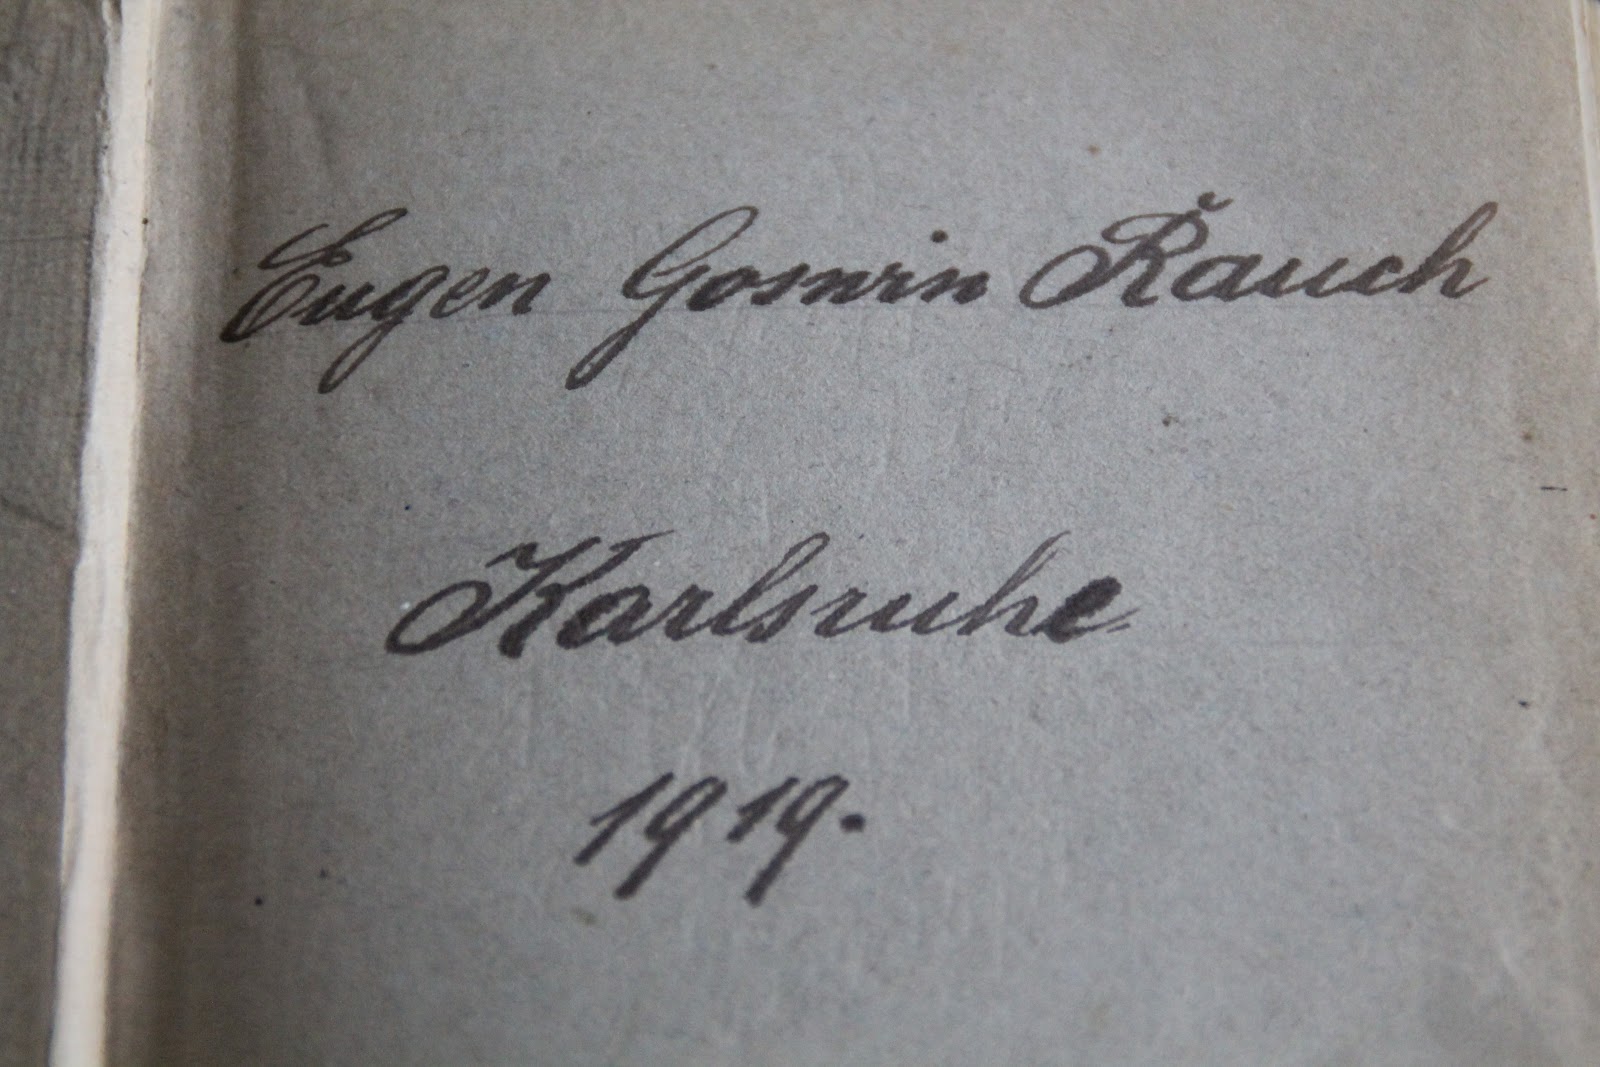 Eugen Rauch
Karlsruhe
1919.